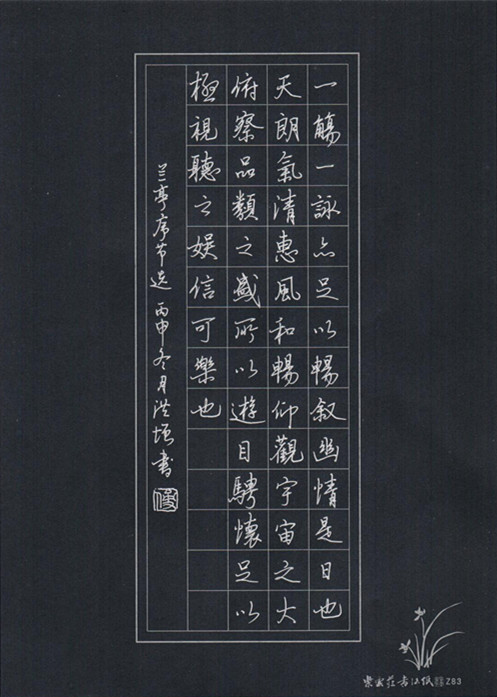 一觴一詠亦足以暢叙幽情是日也
天朗氣清惠風和暢仰觀宇宙之大
俯察品類之盛所以遊目騁懷足以
極視聽之娱信可樂也
兰亭序节选 丙申冬月洪 书
Z83